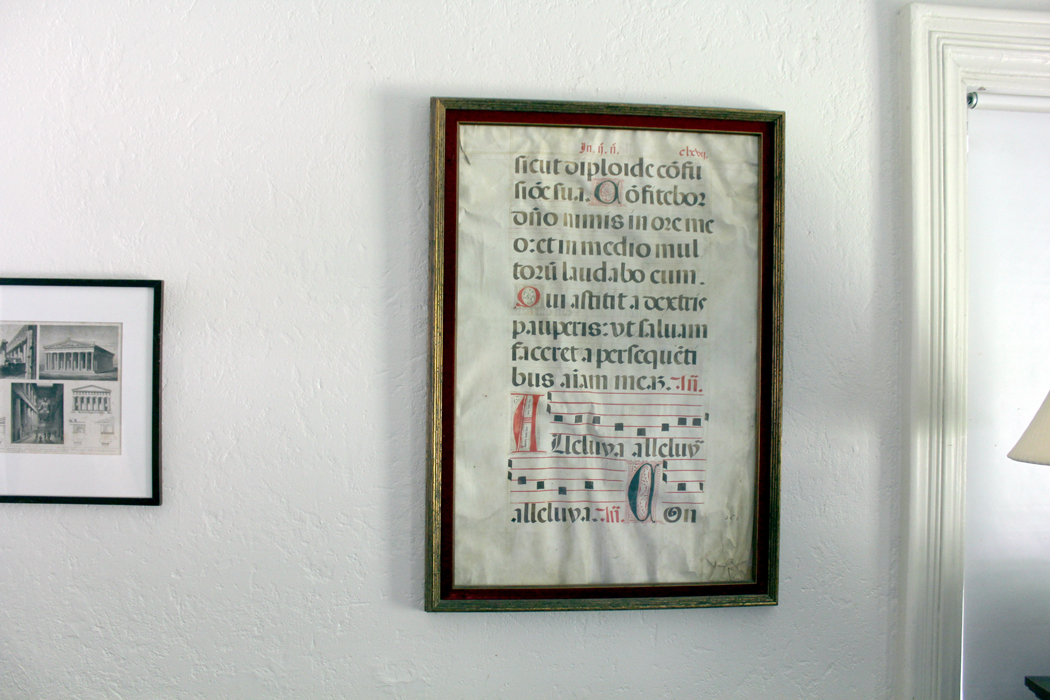 sicut diploide cōfu
siōe sua. Cōfitebor
dn̄o nimis in ore me
o: et in medio mul
torū laudabo eum.
Qui astitit a dextris
pauperis: vt saluam
faceret a persequēti
bus aīam meaʒ. Añ.
Alleluya alleluya
alleluya. Añ. Con